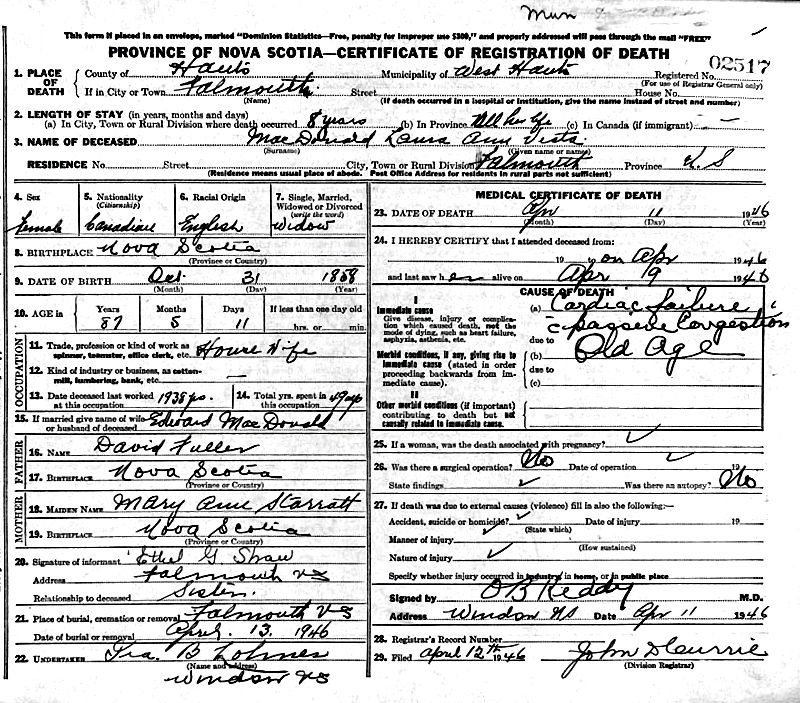 Mun
This form if placed in an envelope, marked "Dominion Statistics—Free, penalty for improper use $300," and properly addressed will pass through the mail "FREE"
PROVINCE OF NOVA SCOTIA—CERTIFICATE OF REGISTRATION OF DEATH
02517
1. PLACE OF DEATH County of Hants Municipality of West Hants Registered No.
(For use of Registrar General only)
If in City or Town Falmouth Street House No.
(Name) (If death occurred in a hospital or institution, give the name instead of street and number)
2. LENGTH OF STAY (in years, months and days)
(a) In City, Town or Rural Division where death occurred 8 years (b) In Province All her life (c) In Canada (if immigrant) —
3. NAME OF DECEASED MacDonald Laura Ann
(Surname) (Given name or names)
RESIDENCE No. Street City, Town or Rural Division Falmouth Province N.S
(Residence means usual place of abode. Post Office Address for residents in rural parts not sufficient)
4. Sex Female
5. Nationality (Citizenship) Canadian
6. Racial Origin English
7. Single, Married, Widowed or Divorced (write the word) Widow
8. BIRTHPLACE Nova Scotia
(Province or Country)
9. DATE OF BIRTH Oct. 31 1858
(Month) (Day) (Year)
10. AGE in Years 87 Months 5 Days 11 If less than one day old hrs. or min.
OCCUPATION
11. Trade, profession or kind of work as spinner, teamster, office clerk, etc. House Wife
12. Kind of industry or business, as cotton-mill, lumbering, bank, etc. —
13. Date deceased last worked at this occupation 1938
14. Total yrs. spent in this occupation
15. If married give name of wife or husband of deceased Edward MacDonald
FATHER
16. NAME David Fuller
17. BIRTHPLACE Nova Scotia
(Province or Country)
MOTHER
18. MAIDEN NAME Mary Ann Starratt
19. BIRTHPLACE Nova Scotia
(Province or Country)
20. Signature of informant Ethel G Shaw
Address Falmouth NS
Relationship to deceased Sister
21. Place of burial, cremation or removal Falmouth NS
Date of burial or removal April. 13. 1946
22. UNDERTAKER Ira B Lohnes
(Name and address)
Windsor NS
MEDICAL CERTIFICATE OF DEATH
23. DATE OF DEATH Apr 11 1946
(Month) (Day) (Year)
24. I HEREBY CERTIFY that I attended deceased from:
19 on Apr 1946
and last saw her alive on Apr 19 1946
CAUSE OF DEATH
I
Immediate cause
Give disease, injury or complication which caused death, not the mode of dying, such as heart failure, asphyxia, asthenia, etc.
(a) Cardiac failure
c passive Congestion
due to Old Age
Morbid conditions, if any, giving rise to immediate cause (stated in order proceeding backwards from immediate cause).
(b)
due to
(c)
II
Other morbid conditions (if important) contributing to death but not causally related to immediate cause.
25. If a woman, was the death associated with pregnancy? ✓
26. Was there a surgical operation? No Date of operation ✓ 19
State findings ✓ Was there an autopsy? No
27. If death was due to external causes (violence) fill in also the following:—
Accident, suicide or homicide? ✓ Date of injury 19
(State which)
Manner of injury ✓
(How sustained)
Nature of injury ✓
Specify whether injury occurred in industry, in home, or in public place
Signed by O B Keddy M.D.
Address Windsor NS Date Apr 11 1946
28. Registrar's Record Number
29. Filed April 12th 1946 John D Currie
(Division Registrar)